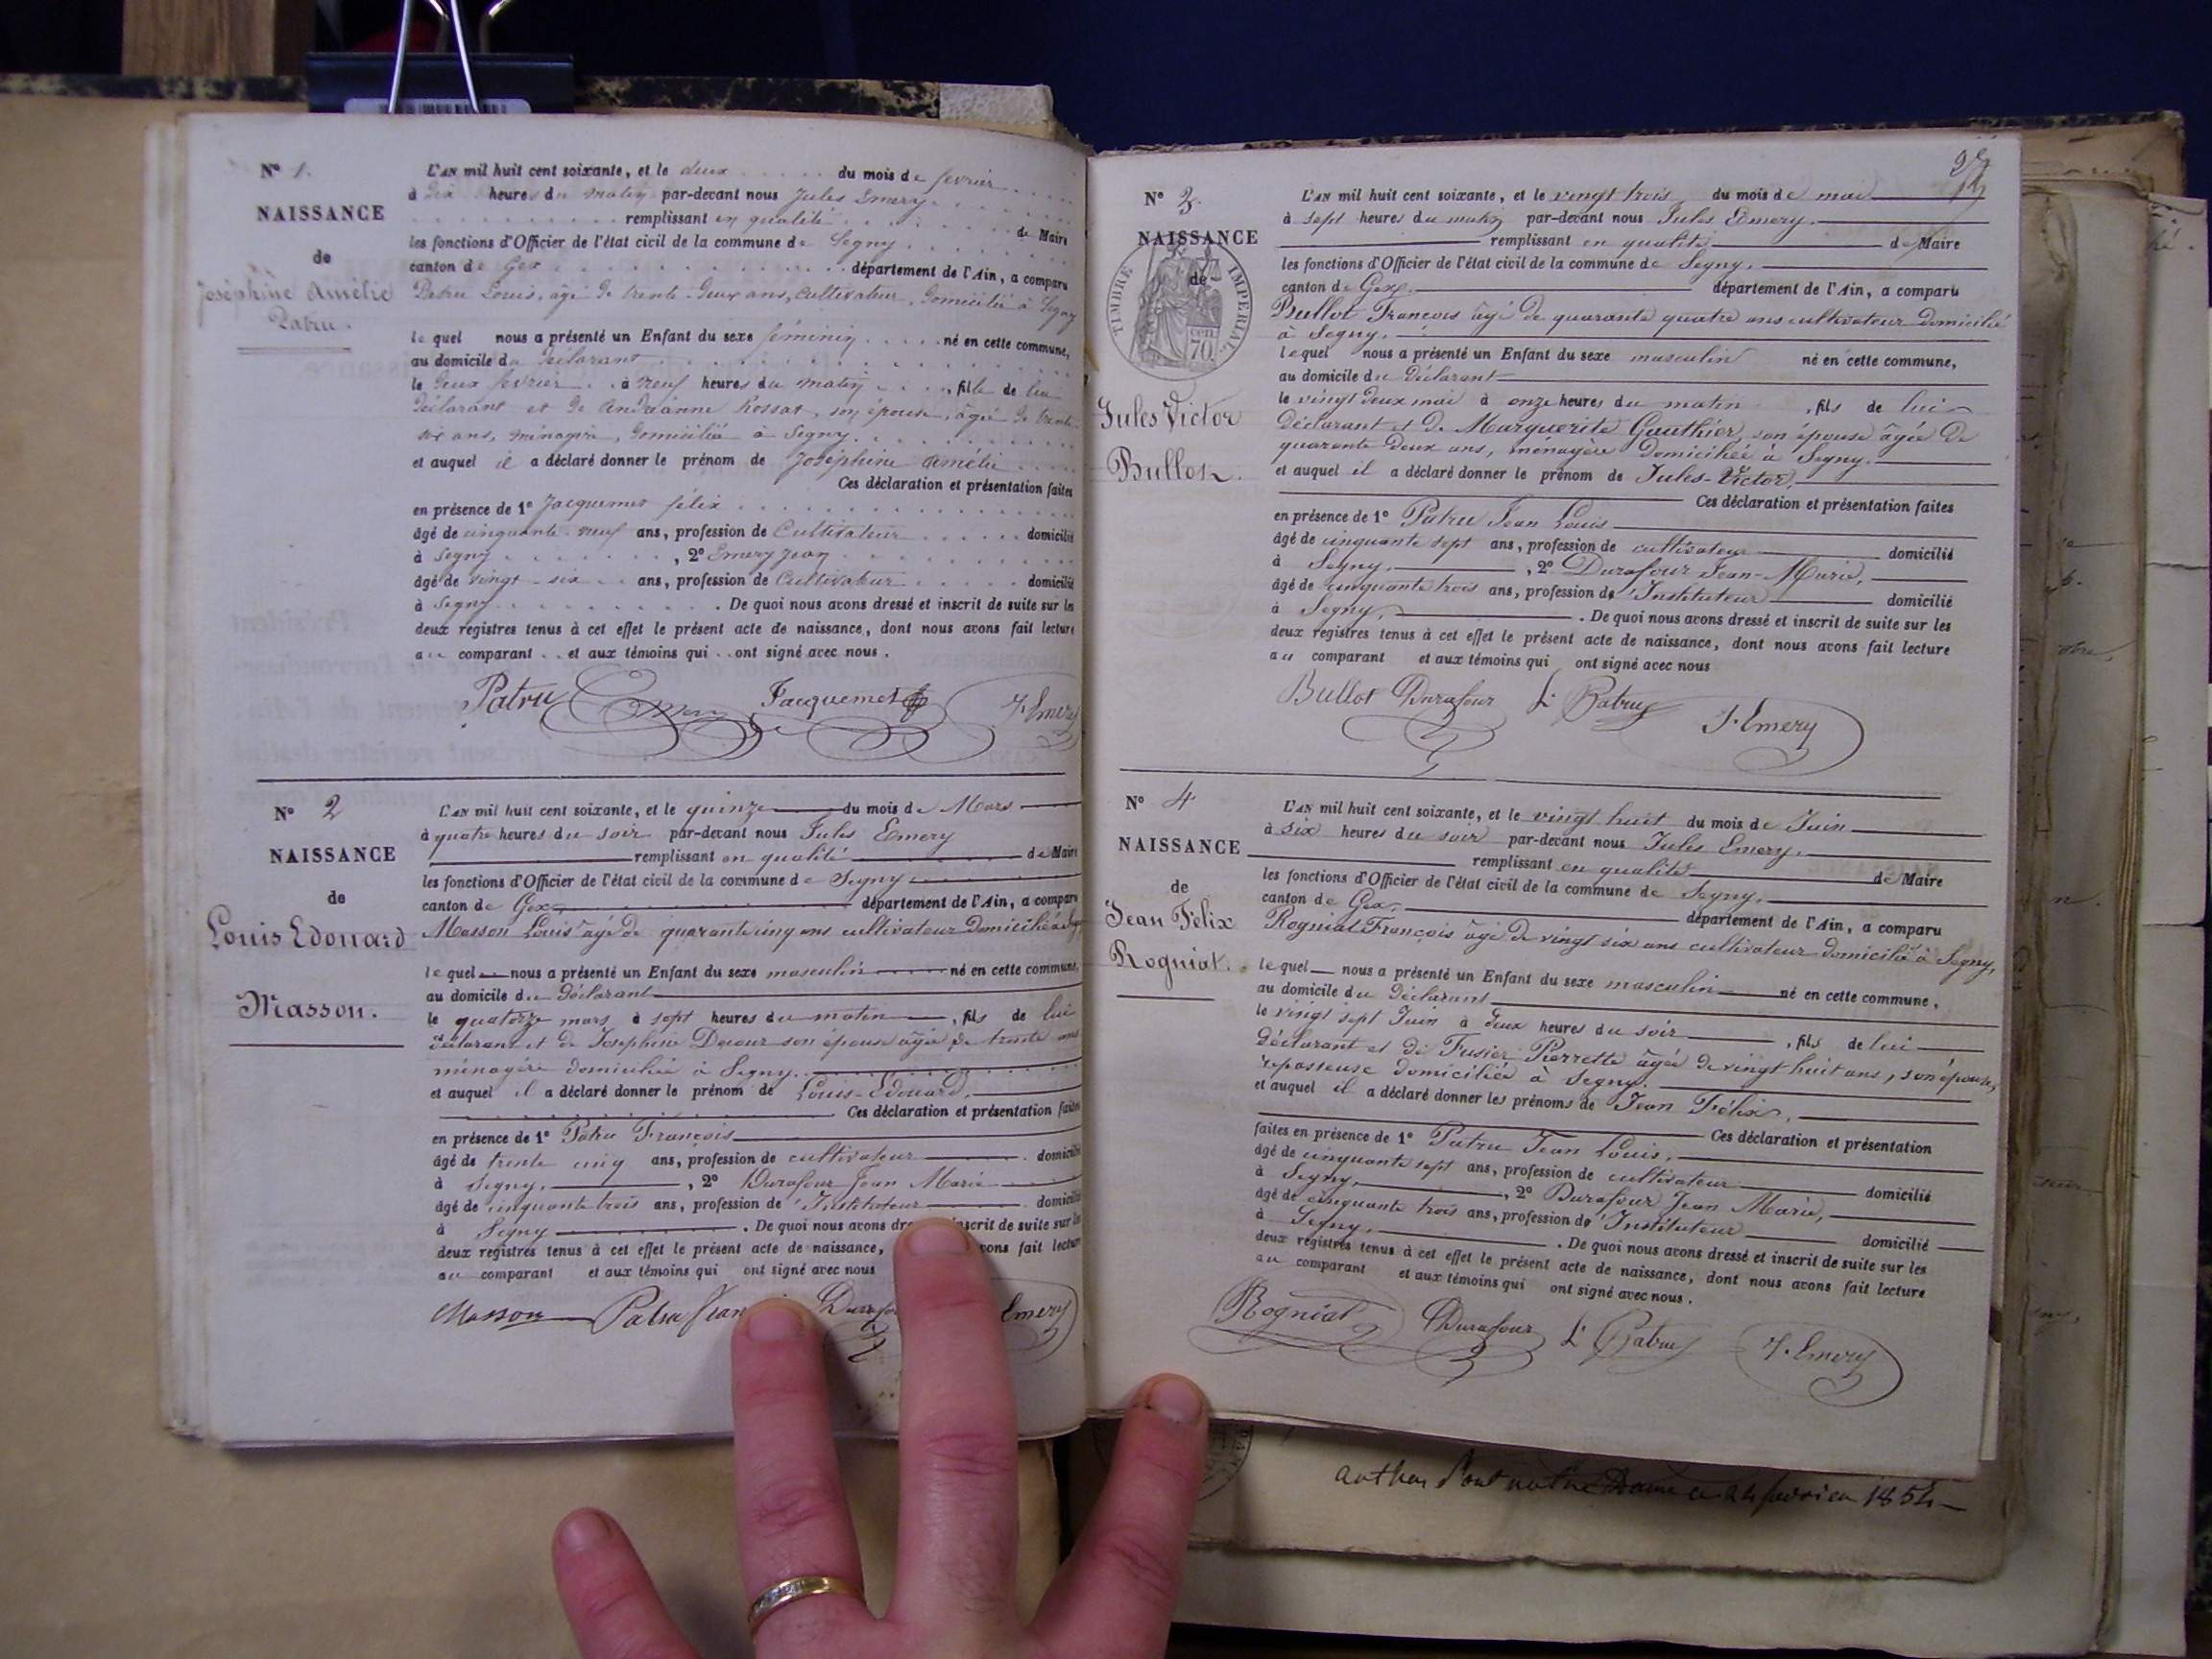 N° 1.
NAISSANCE
de
Joséphine Amélie
Patru.
L'AN mil huit cent soixante, et le deux du mois de février
à dix heures du matin par-devant nous Jules Emery.
remplissant en qualité de Maire
les fonctions d'Officier de l'état civil de la commune de Segny
canton de Gex département de l'Ain, a comparu
Patru Louis, âgé de trente-deux ans, cultivateur, domicilié à Segny
lequel nous a présenté un Enfant du sexe féminin né en cette commune,
au domicile du déclarant
le deux février à neuf heures du matin, fille de lui
déclarant et de Andréanne Rossat, son épouse, âgée de trente-
six ans, ménagère, domiciliée à Segny.
et auquel il a déclaré donner le prénom de Joséphine Amélie
Ces déclaration et présentation faites
en présence de 1° Jacquemet félix
âgé de cinquante-neuf ans, profession de Cultivateur domicilié
à Segny, 2° Emery Jean
âgé de vingt-six ans, profession de Cultivateur domicilié
à Segny. De quoi nous avons dressé et inscrit de suite sur les
deux registres tenus à cet effet le présent acte de naissance, dont nous avons fait lecture
au comparant et aux témoins qui ont signé avec nous.
Patru Emery Jacquemet J. Emery
N° 2
NAISSANCE
de
Louis Edouard
Masson.
L'AN mil huit cent soixante, et le quinze du mois de Mars
à quatre heures du soir par-devant nous Jules Emery
remplissant en qualité de Maire
les fonctions d'Officier de l'état civil de la commune de Segny
canton de Gex département de l'Ain, a comparu
Masson Louis âgé de quarante cinq ans cultivateur Domicilié à Segny
lequel nous a présenté un Enfant du sexe masculin né en cette commune,
au domicile du Déclarant
le quatorze mars à sept heures du matin, fils de lui
déclarant et de Joséphine Decour son épouse âgée de trente ans
ménagère domiciliée à Segny.
et auquel il a déclaré donner le prénom de Louis-Edouard,
Ces déclaration et présentation faites
en présence de 1° Patru François
âgé de trente cinq ans, profession de cultivateur domicilié
à Segny, 2° Durafour Jean Marie
âgé de cinquante trois ans, profession d'Instituteur domicilié
à Segny. De quoi nous avons inscrit de suite sur les
deux registres tenus à cet effet le présent acte de naissance, avons fait lecture
au comparant et aux témoins qui ont signé avec nous
Masson Patru Emery
N° 3.
NAISSANCE
de
TIMBRE IMPÉRIAL
70
Jules Victor
Bullot.
L'AN mil huit cent soixante, et le vingt trois du mois de mai
à sept heures du matin par-devant nous Jules Emery.
remplissant en qualité de Maire
les fonctions d'Officier de l'état civil de la commune de Segny.
canton de Gex. département de l'Ain, a comparu
Bullot François âgé de quarante quatre ans cultivateur domicilié
à Segny.
lequel nous a présenté un Enfant du sexe masculin né en cette commune,
au domicile du Déclarant
le vingt deux mai à onze heures du matin, fils de lui
Déclarant et de Marguerite Gauthier, son épouse âgée de
quarante deux ans, ménagère Domiciliée à Segny.
et auquel il a déclaré donner le prénom de Jules-Victor,
Ces déclaration et présentation faites
en présence de 1° Patru Jean Louis
âgé de cinquante sept ans, profession de cultivateur domicilié
à Segny, 2° Durafour Jean-Marie,
âgé de cinquante trois ans, profession d'Instituteur domicilié
à Segny, De quoi nous avons dressé et inscrit de suite sur les
deux registres tenus à cet effet le présent acte de naissance, dont nous avons fait lecture
au comparant et aux témoins qui ont signé avec nous
Bullot Durafour L. Patru J. Emery
N° 4
NAISSANCE
de
Jean Félix
Rogniat.
L'AN mil huit cent soixante, et le vingt huit du mois de Juin
à six heures du soir par-devant nous Jules Emery.
remplissant en qualité de Maire
les fonctions d'Officier de l'état civil de la commune de Segny.
canton de Gex, département de l'Ain, a comparu
Rogniat François âgé de vingt six ans cultivateur domicilié à Segny,
lequel nous a présenté un Enfant du sexe masculin né en cette commune,
au domicile du Déclarant
le vingt sept Juin à deux heures du soir, fils de lui
déclarant et de Fusier Pierrette âgée de vingt huit ans, son épouse,
repasseuse domiciliée à Segny.
et auquel il a déclaré donner les prénoms de Jean Félix,
Ces déclaration et présentation
faites en présence de 1° Patru Jean Louis,
âgé de cinquante sept ans, profession de cultivateur domicilié
à Segny, 2° Durafour Jean Marie,
âgé de cinquante trois ans, profession d'Instituteur domicilié
à Segny, De quoi nous avons dressé et inscrit de suite sur les
deux registres tenus à cet effet le présent acte de naissance, dont nous avons fait lecture
au comparant et aux témoins qui ont signé avec nous.
Rogniat Durafour L. Patru J. Emery
1854